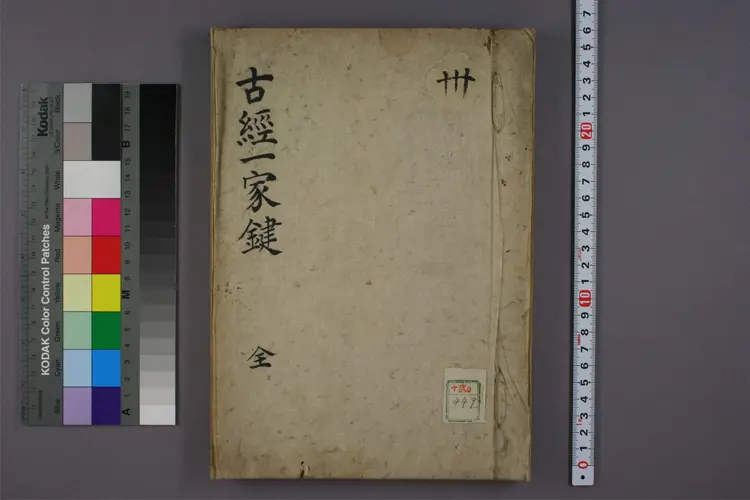 古經一家鍵
全
卅
449
Kodak
KODAK Color Control Patches
Blue
Cyan
Green
Yellow
Red
Magenta
White
3/Color
Black
A 1 2 3 4 5 6 M 8 9 10 11 12 13 14 15 B 17 18 19
0 1 2 3 4 5 6 7 8 9 10 1 2 3 4 5 6 7 8 9 20 1 2 3 4 5 6 7